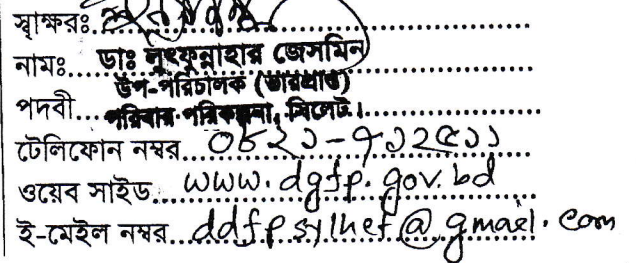 স্বাক্ষরঃ
নামঃ ডাঃ লুৎফুন্নাহার জেসমিন
উপ-পরিচালক (ভারপ্রাপ্ত)
পদবী পরিবার পরিকল্পনা, সিলেট।
টেলিফোন নম্বর ০৮২১-৭১২৫১১
ওয়েব সাইড www.dgfp.gov.bd
ই-মেইল নম্বর ddfpsylhet@gmail.com